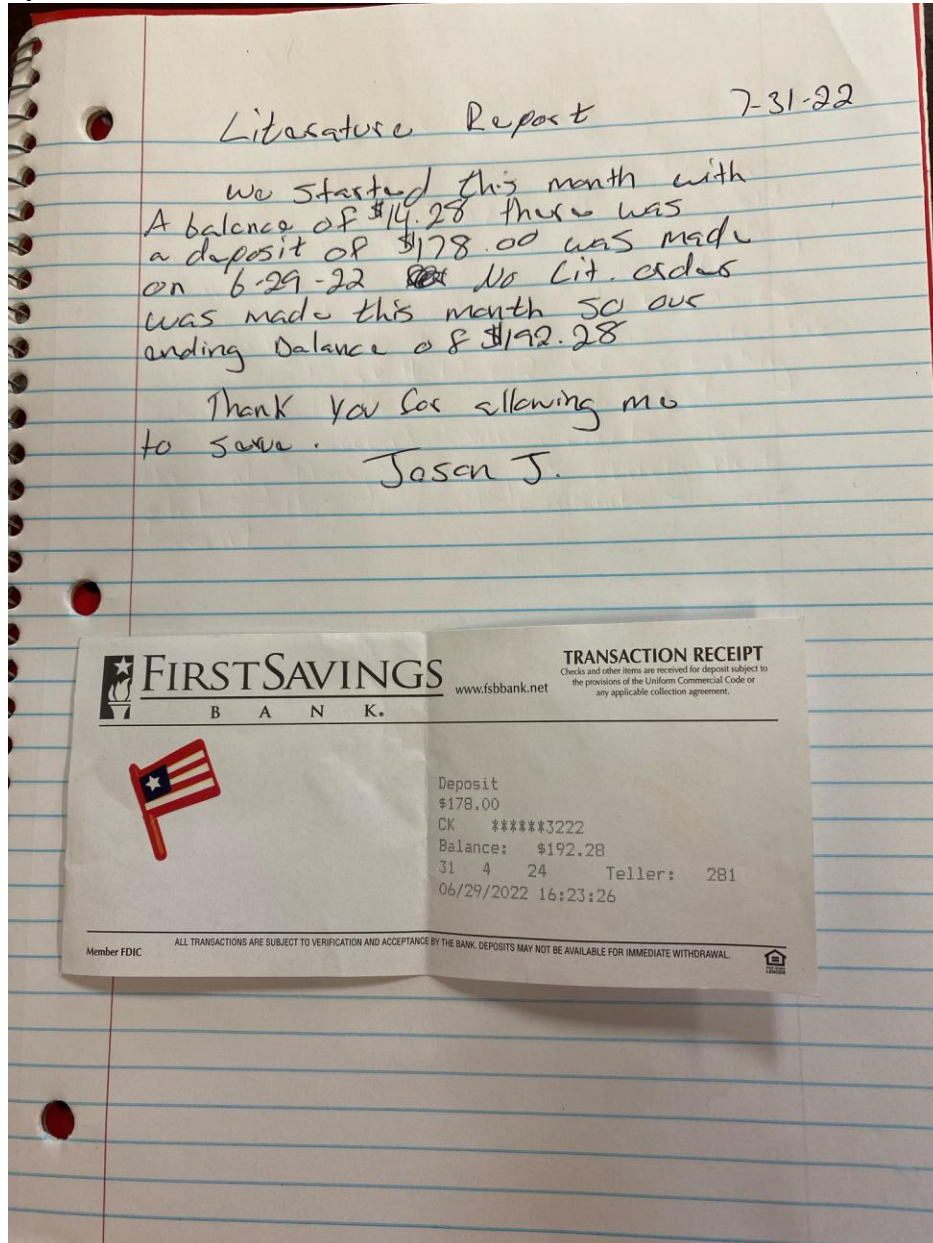 Literature Report 7-31-22
We started this month with
A balance of $14.28 there was
a deposit of $178.00 was made
on 6-29-22 No Lit. order
was made this month so our
ending balance of $192.28
Thank you for allowing me
to serve.
Jason J.
FIRST SAVINGS
BANK.
www.fsbbank.net
TRANSACTION RECEIPT
Checks and other items are received for deposit subject to
the provisions of the Uniform Commercial Code or
any applicable collection agreement.
Deposit
$178.00
CK ******3222
Balance: $192.28
31 4 24 Teller: 281
06/29/2022 16:23:26
Member FDIC
ALL TRANSACTIONS ARE SUBJECT TO VERIFICATION AND ACCEPTANCE BY THE BANK. DEPOSITS MAY NOT BE AVAILABLE FOR IMMEDIATE WITHDRAWAL.